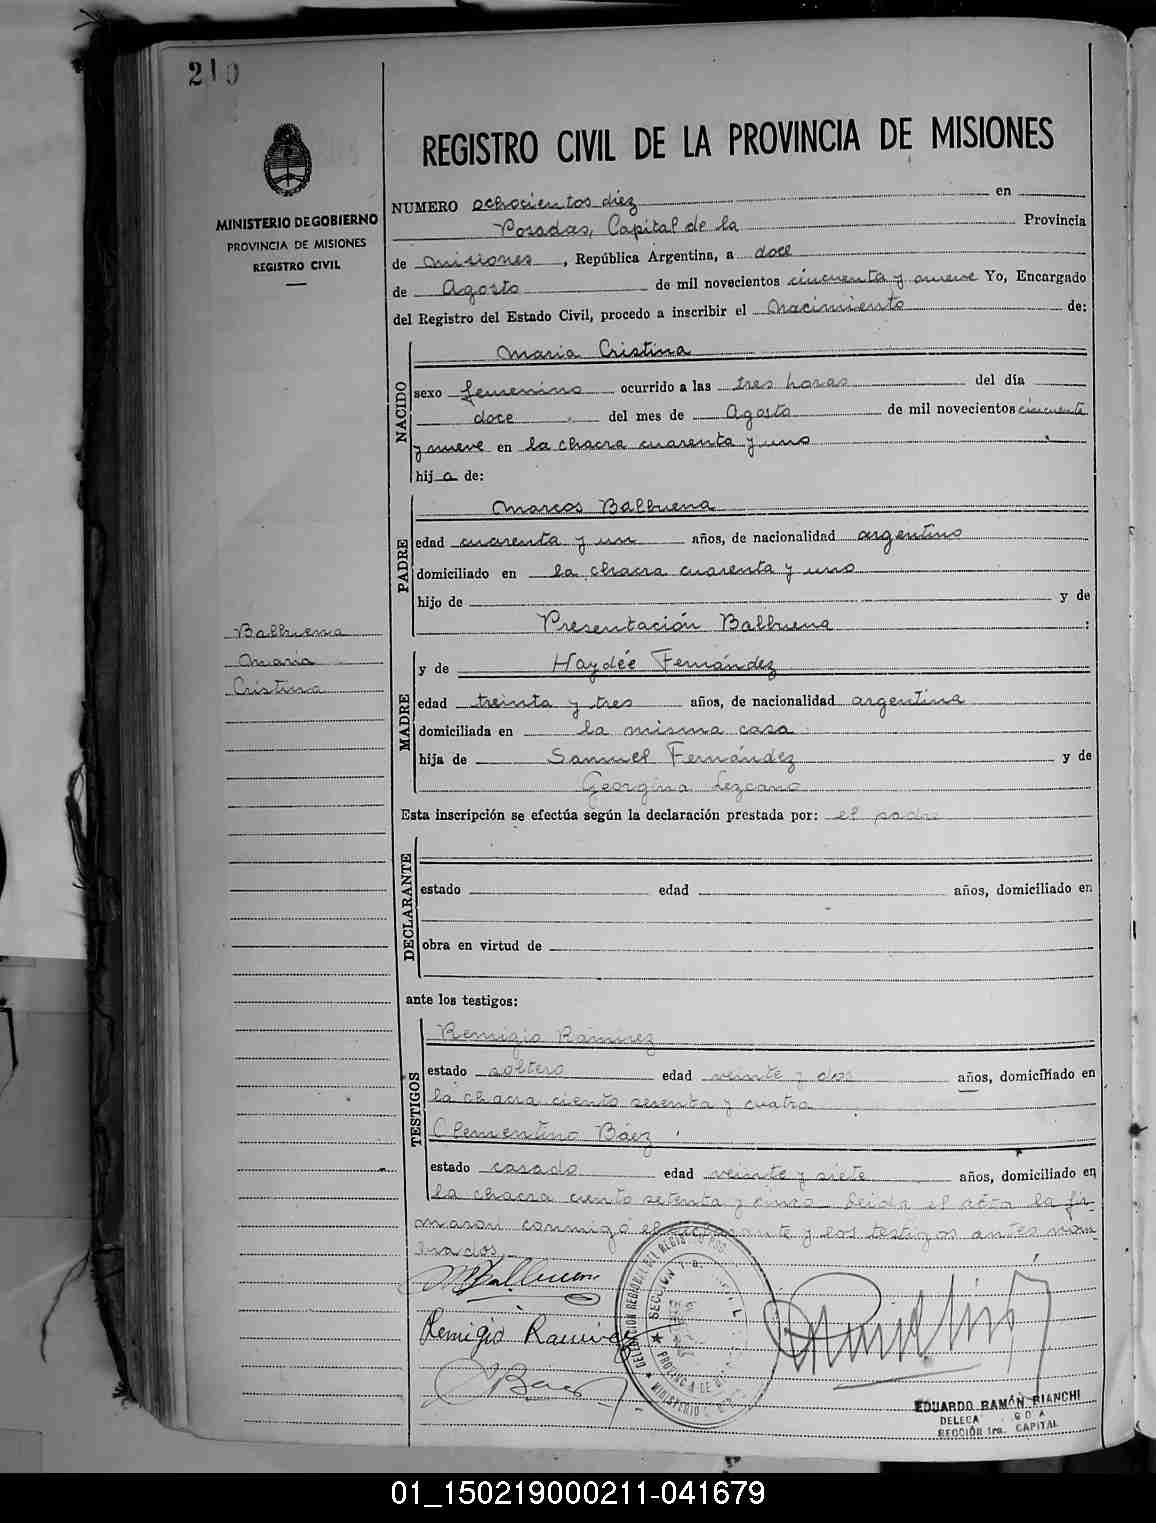 210
MINISTERIO DE GOBIERNO
PROVINCIA DE MISIONES
REGISTRO CIVIL
REGISTRO CIVIL DE LA PROVINCIA DE MISIONES
NUMERO ochocientos diez en
Posadas, Capital de la Provincia
de Misiones, República Argentina, a doce
de Agosto de mil novecientos cincuenta y nueve Yo, Encargado
del Registro del Estado Civil, procedo a inscribir el Nacimiento de:
NACIDO
Maria Cristina
sexo femenino ocurrido a las tres horas del día
doce del mes de Agosto de mil novecientos cincuenta
y nueve en la chacra cuarenta y uno
hij a de:
PADRE
Marcos Balbuena
edad cuarenta y un años, de nacionalidad argentino
domiciliado en la chacra cuarenta y uno
hijo de y de
Presentación Balbuena :
Balbuena
Maria
Cristina
MADRE
y de Haydée Fernández
edad treinta y tres años, de nacionalidad argentina
domiciliada en la misma casa
hija de Samuel Fernández y de
Georgina Lezcano
Esta inscripción se efectúa según la declaración prestada por: el padre
DECLARANTE
estado edad años, domiciliado en
obra en virtud de
ante los testigos:
TESTIGOS
Remigio Ramirez
estado soltero edad veinte y dos años, domiciliado en
la chacra ciento sesenta y cuatro
Clementino Báez
estado casado edad veinte y siete años, domiciliado en
la chacra ciento setenta y cinco Leida el acta la fir-
maron conmigo el declarante y los testigos antes nom-
brados.
MBalbuena
Remigio Ramirez
CBaez
DELEGACIÓN REGIONAL DEL REGISTRO
SECCION 1a.
PROVINCIA DE
MINISTERIO
EDUARDO RAMÓN BIANCHI
SECCIÓN 1ra. CAPITAL
01_150219000211-041679